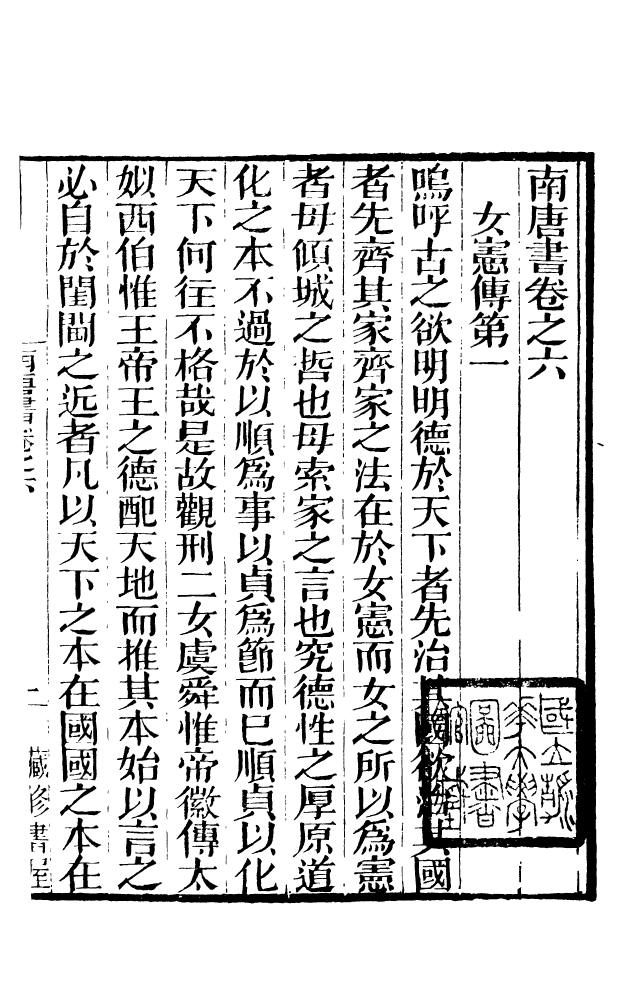 南唐書卷之六
女憲傳第一
嗚呼古之欲明明德於天下者先治其國欲治其國
者先齊其家齊家之法在於女憲而女之所以爲憲
者毋傾城之哲也毋索家之言也究德性之厚原道
化之本不過於以順爲事以貞爲節而巳順貞以化
天下何往不格哉是故觀刑二女虞舜惟帝徽傳太
姒西伯惟王帝王之德配天地而推其本始以言之
必自於閨閫之近者凡以天下之本在國國之本在
南唐書卷之六
藏修書屋
國立清
華大學
圖書
館藏